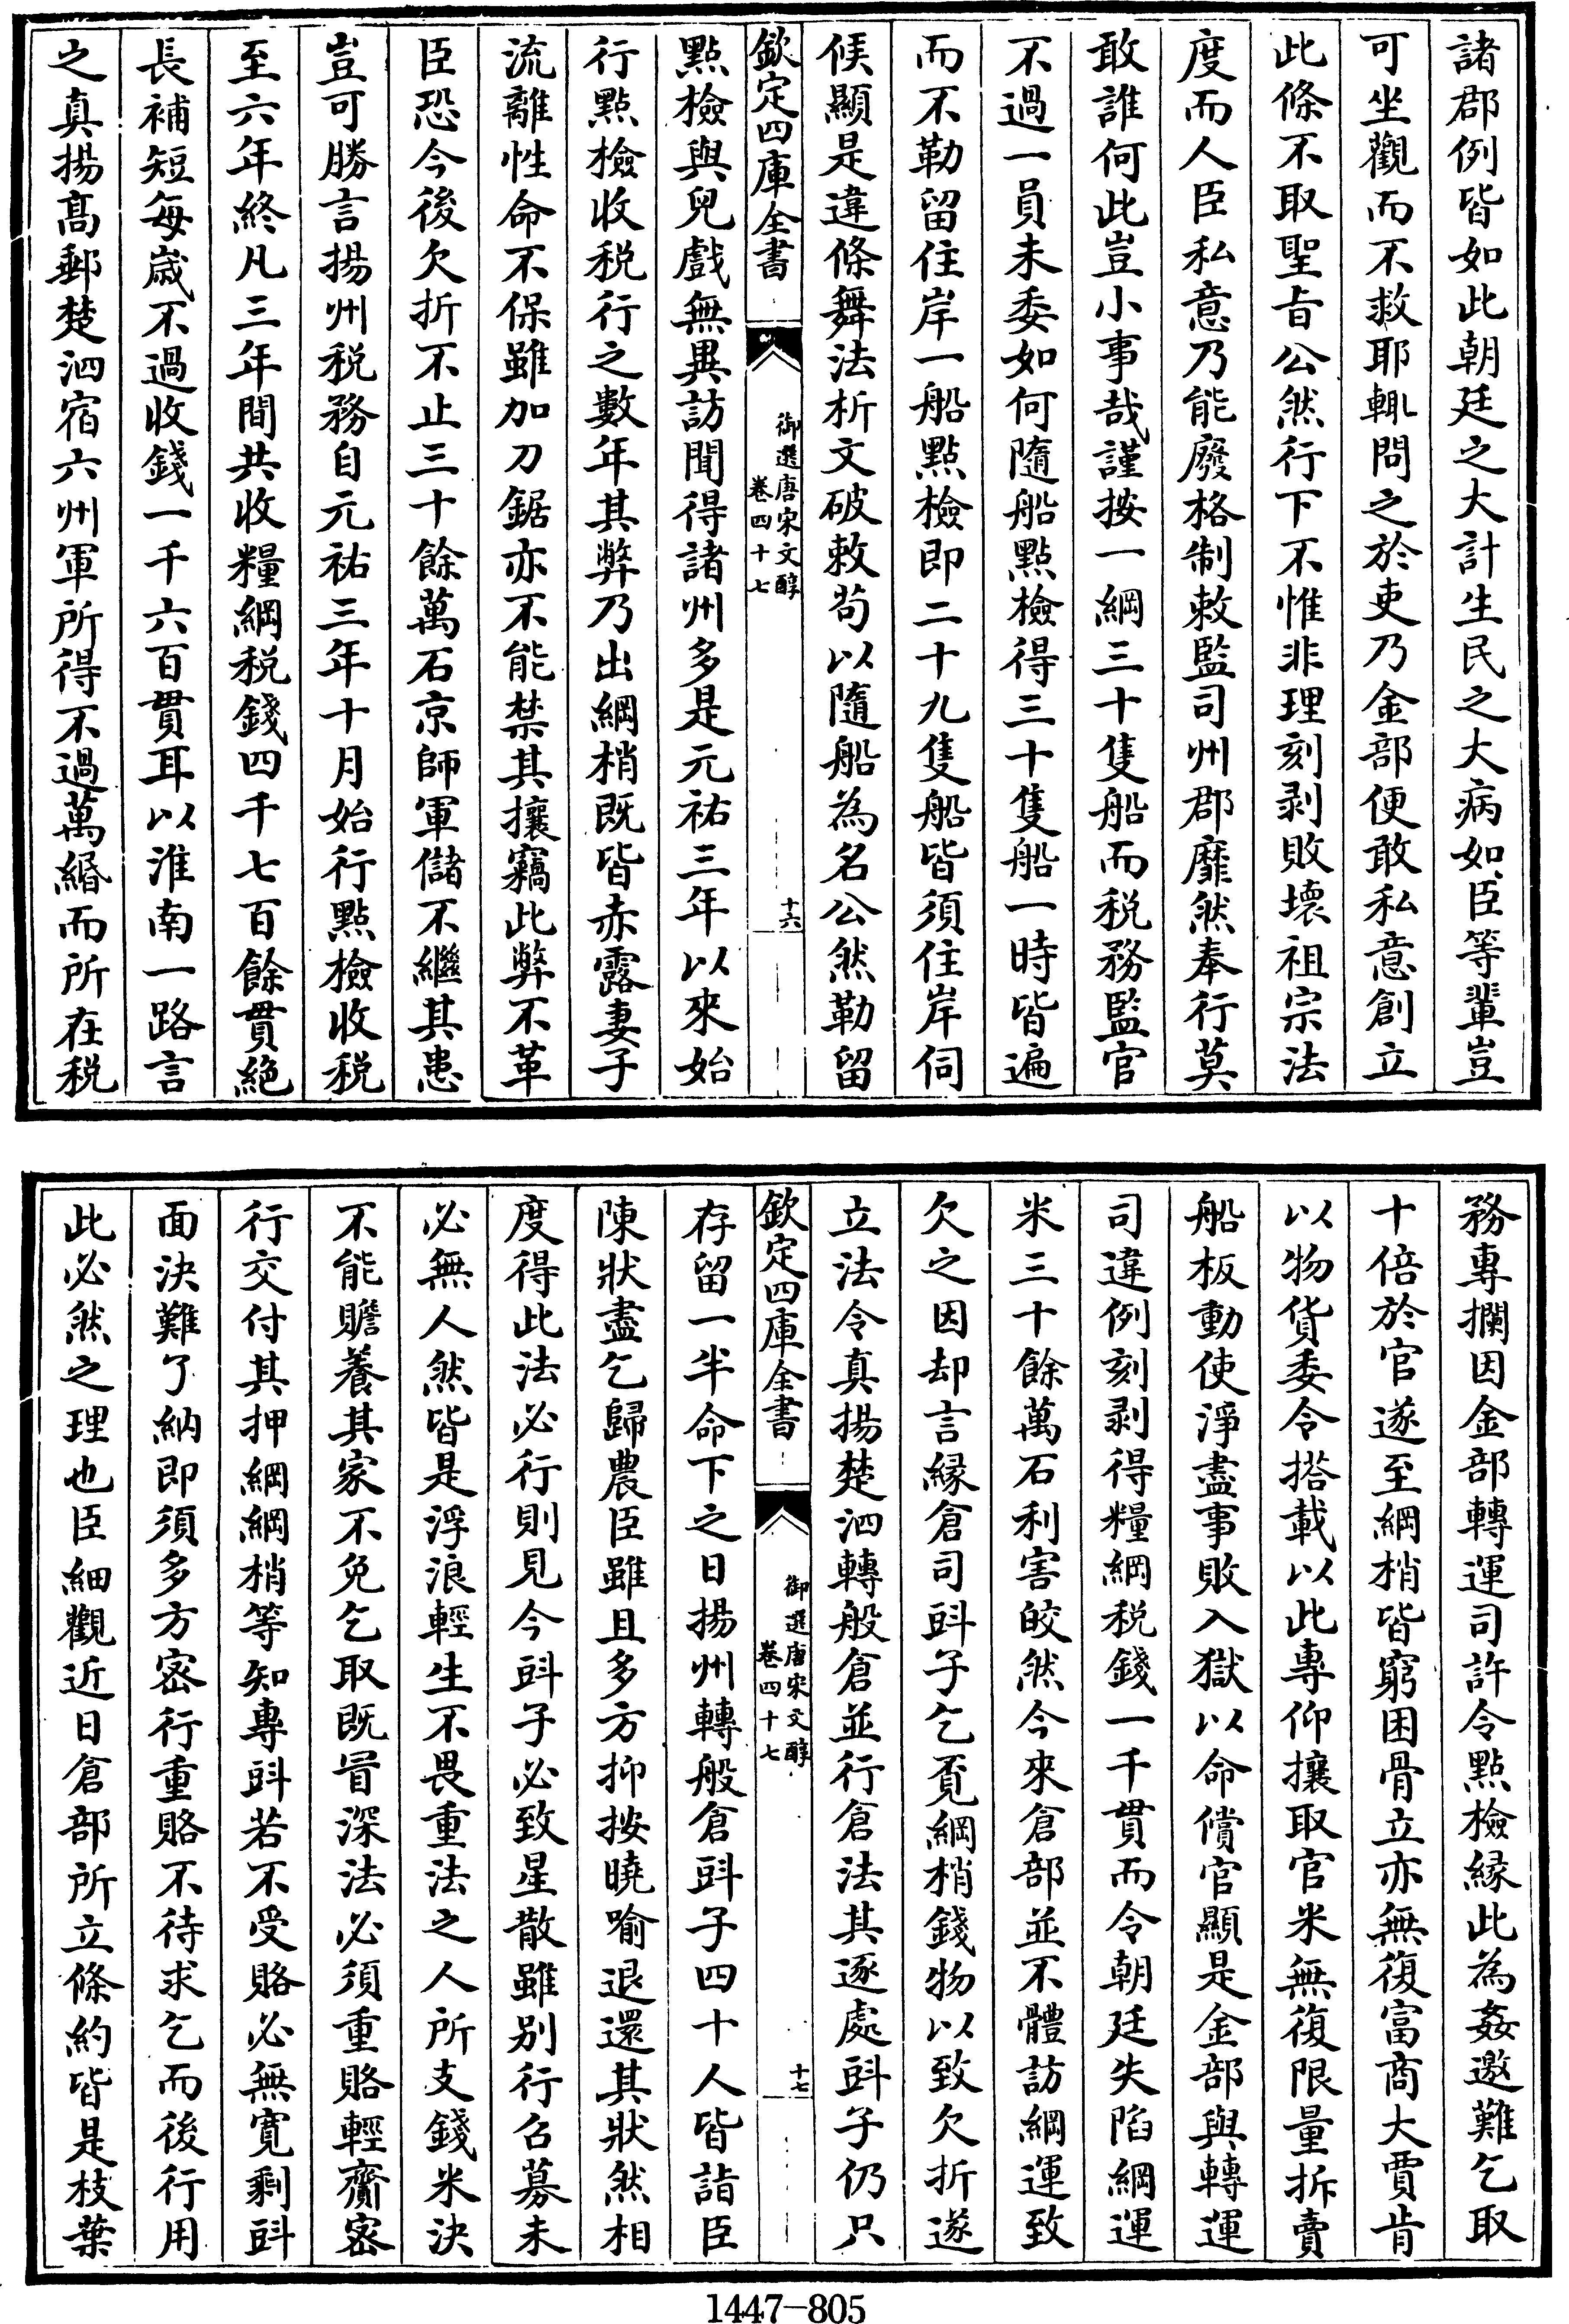 諸郡例皆如此朝廷之大計生民之大病如臣等輩豈
可坐觀而不救耶輒問之於吏乃金部便敢私意創立
此條不取聖旨公然行下不惟非理刻剥敗壞祖宗法
度而人臣私意乃能廢格制敕監司州郡靡然奉行莫
敢誰何此豈小事哉謹按一綱三十隻船而税務監官
不過一員未委如何隨船點檢得三十隻船一時皆遍
而不勒留住岸一船點檢即二十九隻船皆須住岸伺
候顯是違條舞法析文破敕茍以隨船為名公然勒留
欽定四庫全書
御選唐宋文醇
卷四十七
十六
點檢與兒戲無異訪聞得諸州多是元祐三年以來始
行點檢收税行之數年其弊乃出綱梢既皆赤露妻子
流離性命不保雖加刀鋸亦不能禁其攘竊此弊不革
臣恐今後欠折不止三十餘萬石京師軍儲不繼其患
豈可勝言揚州税務自元祐三年十月始行點檢收税
至六年終凡三年間共收糧綱税錢四千七百餘貫絶
長補短每歲不過收錢一千六百貫耳以淮南一路言
之真揚髙郵楚泗宿六州軍所得不過萬緡而所在税
務專攔因金部轉運司許令點檢縁此為姦邀難乞取
十倍於官遂至綱梢皆窮困骨立亦無復富商大賈肯
以物貨委令搭載以此專仰攘取官米無復限量拆賣
船板動使淨盡事敗入獄以命償官顯是金部與轉運
司違例刻剥得糧綱税錢一千貫而令朝廷失陷綱運
米三十餘萬石利害皎然今來倉部並不體訪綱運致
欠之因却言縁倉司㪷子乞覓綱梢錢物以致欠折遂
立法令真揚楚泗轉般倉並行倉法其逐處㪷子仍只
欽定四庫全書
御選唐宋文醇
卷四十七
十七
存留一半命下之日揚州轉般倉㪷子四十人皆詣臣
陳狀盡乞歸農臣雖且多方抑按曉喻退還其狀然相
度得此法必行則見今㪷子必致星散雖别行召募未
必無人然皆是浮浪輕生不畏重法之人所支錢米決
不能贍養其家不免乞取既冒深法必須重賂輕齎密
行交付其押綱綱梢等知專㪷若不受賂必無寛剰㪷
面決難了納即須多方密行重賂不待求乞而後行用
此必然之理也臣細觀近日倉部所立條約皆是枝葉
1447-805